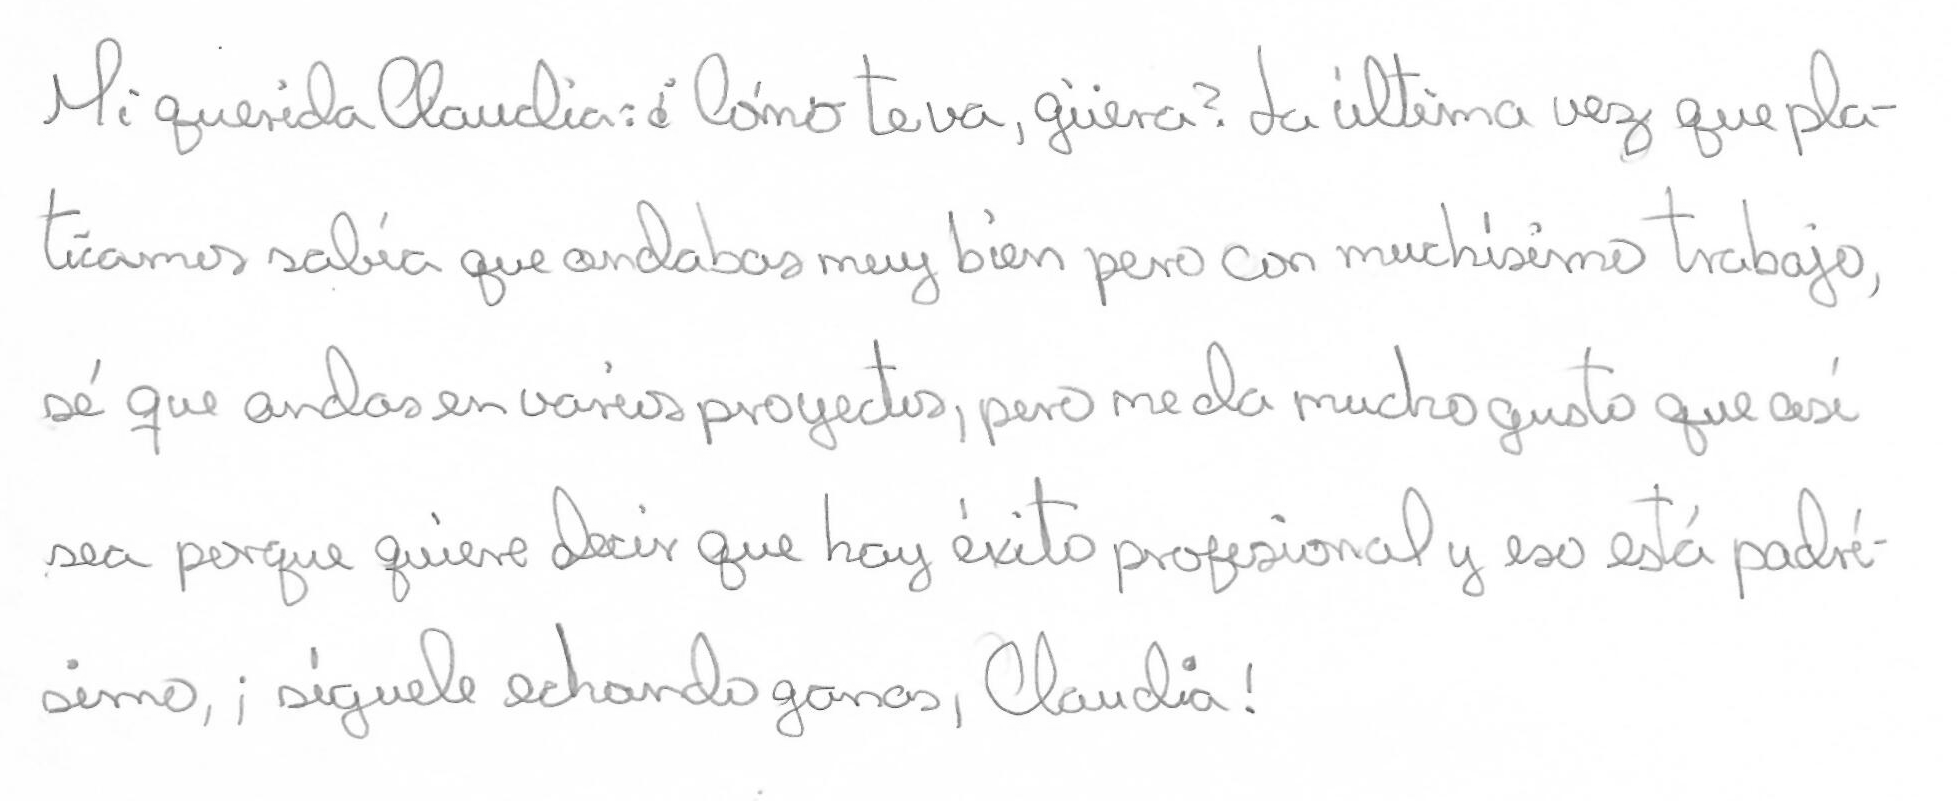 Mi querida Claudia: ¿Cómo te va, güera? La última vez que pla-
ticamos sabía que andabas muy bien pero con muchísimo trabajo,
sé que andas en varios proyectos, pero me da mucho gusto que así
sea porque quiere decir que hay éxito profesional y eso está padrí-
simo, ¡síguele echando ganas, Claudia!